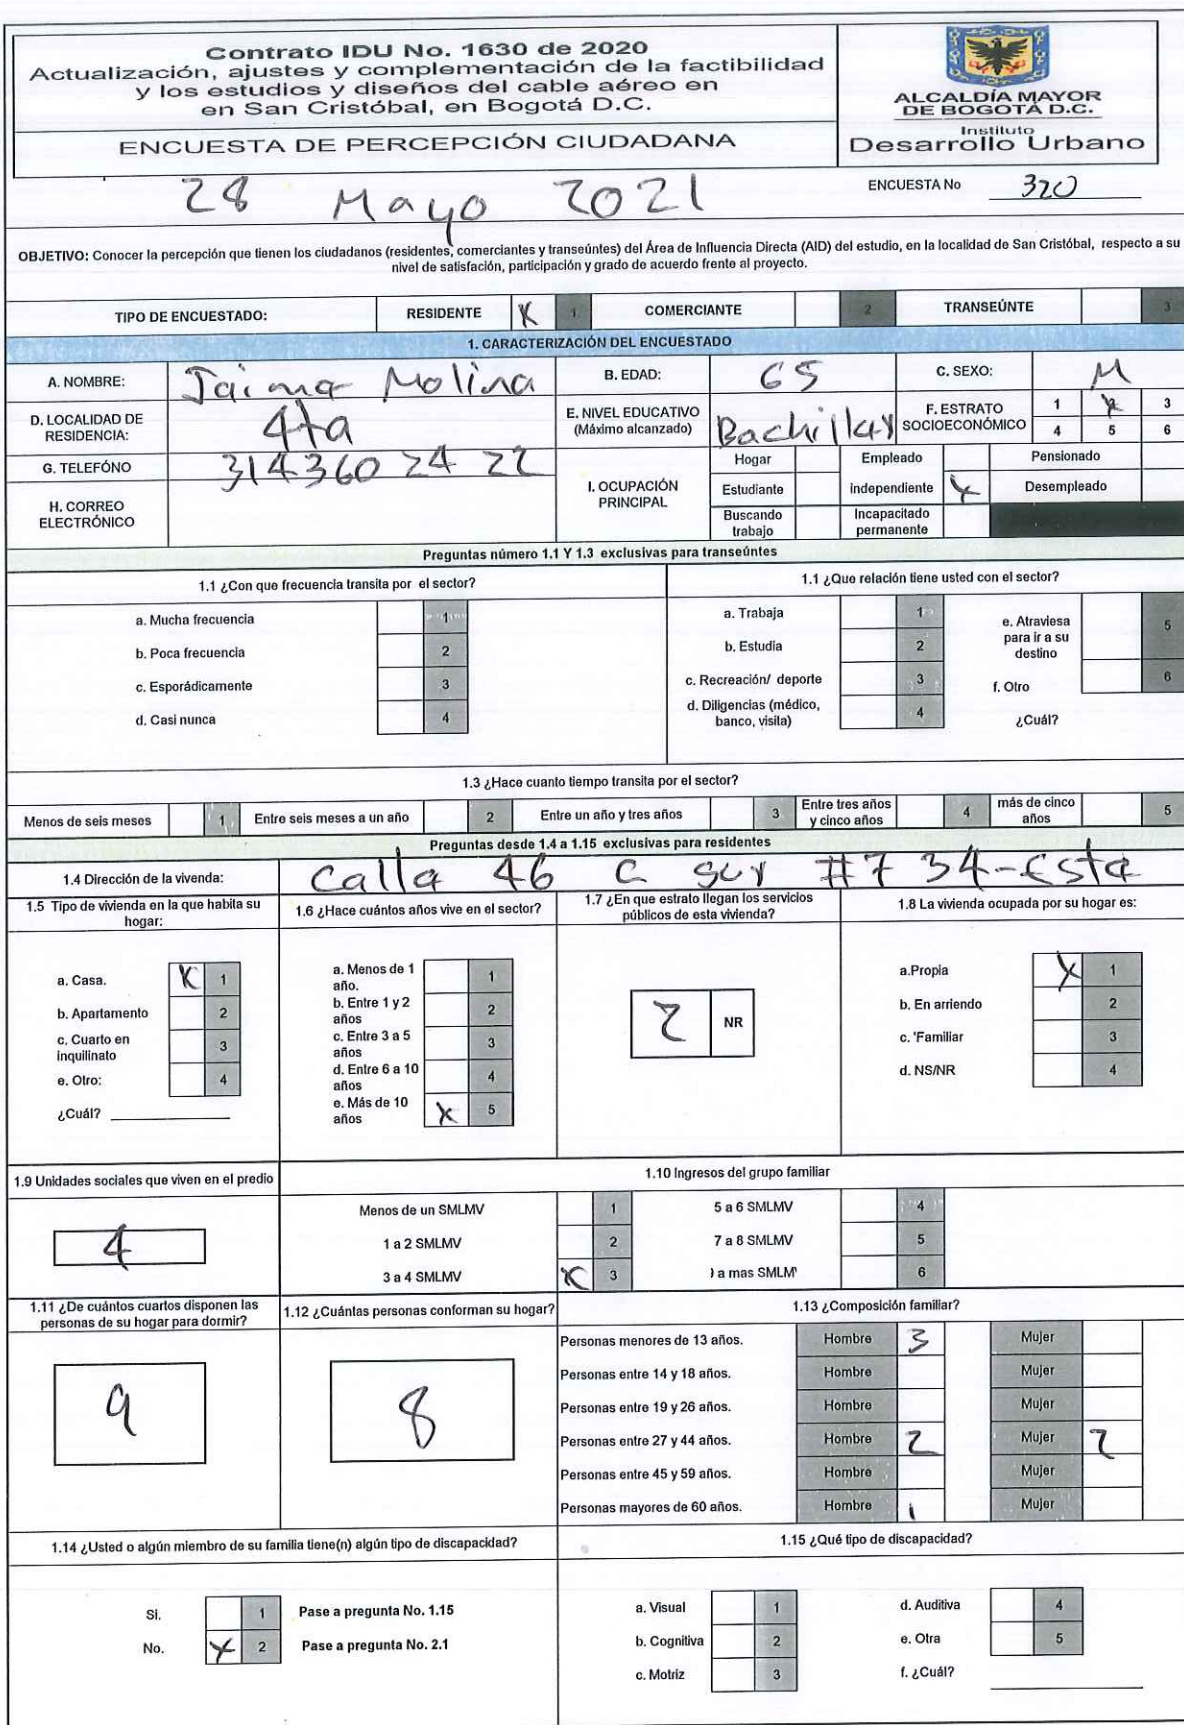 Contrato IDU No. 1630 de 2020
Actualización, ajustes y complementación de la factibilidad
y los estudios y diseños del cable aéreo en
en San Cristóbal, en Bogotá D.C.
ENCUESTA DE PERCEPCIÓN CIUDADANA
ALCALDÍA MAYOR
DE BOGOTÁ D.C.
Instituto
Desarrollo Urbano
28 Mayo 2021
ENCUESTA No 320
OBJETIVO: Conocer la percepción que tienen los ciudadanos (residentes, comerciantes y transeúntes) del Área de Influencia Directa (AID) del estudio, en la localidad de San Cristóbal, respecto a su
nivel de satisfacción, participación y grado de acuerdo frente al proyecto.
TIPO DE ENCUESTADO: RESIDENTE X 1 COMERCIANTE 2 TRANSEÚNTE 3
1. CARACTERIZACIÓN DEL ENCUESTADO
A. NOMBRE: Jaime Molina B. EDAD: 65 C. SEXO: M
D. LOCALIDAD DE RESIDENCIA: 4ta E. NIVEL EDUCATIVO (Máximo alcanzado) Bachiller F. ESTRATO SOCIOECONÓMICO 1 X 3
4 5 6
G. TELEFÓNO 314360 24 22
H. CORREO ELECTRÓNICO
I. OCUPACIÓN PRINCIPAL
Hogar Empleado Pensionado
Estudiante independiente X Desempleado
Buscando trabajo Incapacitado permanente
Preguntas número 1.1 Y 1.3 exclusivas para transeúntes
1.1 ¿Con que frecuencia transita por el sector?
a. Mucha frecuencia 1
b. Poca frecuencia 2
c. Esporádicamente 3
d. Casi nunca 4
1.1 ¿Que relación tiene usted con el sector?
a. Trabaja 1
b. Estudia 2
c. Recreación/ deporte 3
d. Diligencias (médico, banco, visita) 4
e. Atraviesa para ir a su destino 5
f. Otro 6
¿Cuál?
1.3 ¿Hace cuanto tiempo transita por el sector?
Menos de seis meses 1 Entre seis meses a un año 2 Entre un año y tres años 3 Entre tres años y cinco años 4 más de cinco años 5
Preguntas desde 1.4 a 1.15 exclusivas para residentes
1.4 Dirección de la vivienda: Calle 46 C sur #7 34-Este
1.5 Tipo de vivienda en la que habita su hogar:
a. Casa. X 1
b. Apartamento 2
c. Cuarto en inquilinato 3
e. Otro: 4
¿Cuál?
1.6 ¿Hace cuántos años vive en el sector?
a. Menos de 1 año. 1
b. Entre 1 y 2 años 2
c. Entre 3 a 5 años 3
d. Entre 6 a 10 años 4
e. Más de 10 años X 5
1.7 ¿En que estrato llegan los servicios públicos de esta vivienda?
2 NR
1.8 La vivienda ocupada por su hogar es:
a.Propia X 1
b. En arriendo 2
c. 'Familiar 3
d. NS/NR 4
1.9 Unidades sociales que viven en el predio
4
1.10 Ingresos del grupo familiar
Menos de un SMLMV 1 5 a 6 SMLMV 4
1 a 2 SMLMV 2 7 a 8 SMLMV 5
3 a 4 SMLMV X 3 a mas SMLM 6
1.11 ¿De cuántos cuartos disponen las personas de su hogar para dormir?
9
1.12 ¿Cuántas personas conforman su hogar?
8
1.13 ¿Composición familiar?
Personas menores de 13 años. Hombre 3 Mujer
Personas entre 14 y 18 años. Hombre Mujer
Personas entre 19 y 26 años. Hombre Mujer
Personas entre 27 y 44 años. Hombre 2 Mujer 2
Personas entre 45 y 59 años. Hombre Mujer
Personas mayores de 60 años. Hombre 1 Mujer
1.14 ¿Usted o algún miembro de su familia tiene(n) algún tipo de discapacidad?
Si. 1 Pase a pregunta No. 1.15
No. X 2 Pase a pregunta No. 2.1
1.15 ¿Qué tipo de discapacidad?
a. Visual 1 d. Auditiva 4
b. Cognitiva 2 e. Otra 5
c. Motriz 3 f. ¿Cuál?